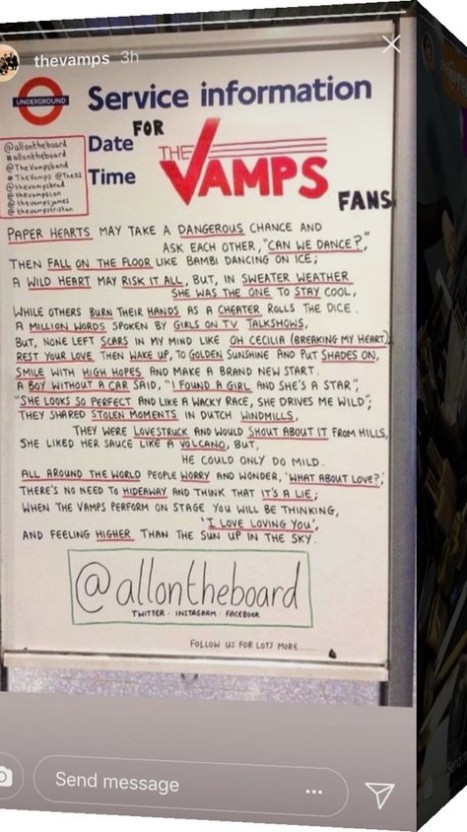 thevamps 3h
UNDERGROUND
Service information
Date FOR
Time
THE VAMPS
FANS
@allontheboard
#allontheboard
@TheVampsband
#TheVamps @The02
@thevampsbrad
@thevampscon
@thevampsjames
@thevampstristan
PAPER HEARTS MAY TAKE A DANGEROUS CHANCE AND
ASK EACH OTHER, "CAN WE DANCE?",
THEN FALL ON THE FLOOR LIKE BAMBI DANCING ON ICE;
A WILD HEART MAY RISK IT ALL, BUT, IN SWEATER WEATHER
SHE WAS THE ONE TO STAY COOL,
WHILE OTHERS BURN THEIR HANDS AS A CHEATER ROLLS THE DICE.
A MILLION WORDS SPOKEN BY GIRLS ON TV TALKSHOWS,
BUT, NONE LEFT SCARS IN MY MIND LIKE OH CECILIA (BREAKING MY HEART)
REST YOUR LOVE THEN WAKE UP, TO GOLDEN SUNSHINE AND PUT SHADES ON,
SMILE WITH HIGH HOPES AND MAKE A BRAND NEW START.
A BOY WITHOUT A CAR SAID, "I FOUND A GIRL AND SHE'S A STAR",
"SHE LOOKS SO PERFECT AND LIKE A WACKY RACE, SHE DRIVES ME WILD";
THEY SHARED STOLEN MOMENTS IN DUTCH WINDMILLS,
THEY WERE LOVESTRUCK AND WOULD SHOUT ABOUT IT FROM HILLS,
SHE LIKED HER SAUCE LIKE A VOLCANO, BUT,
HE COULD ONLY DO MILD.
ALL AROUND THE WORLD PEOPLE WORRY AND WONDER, 'WHAT ABOUT LOVE?',
THERE'S NO NEED TO HIDEAWAY AND THINK THAT IT'S A LIE;
WHEN THE VAMPS PERFORM ON STAGE YOU WILL BE THINKING,
'I LOVE LOVING YOU',
AND FEELING HIGHER THAN THE SUN UP IN THE SKY.
@allontheboard
TWITTER · INSTAGRAM · FACEBOOK
FOLLOW US FOR LOTS MORE
Send message